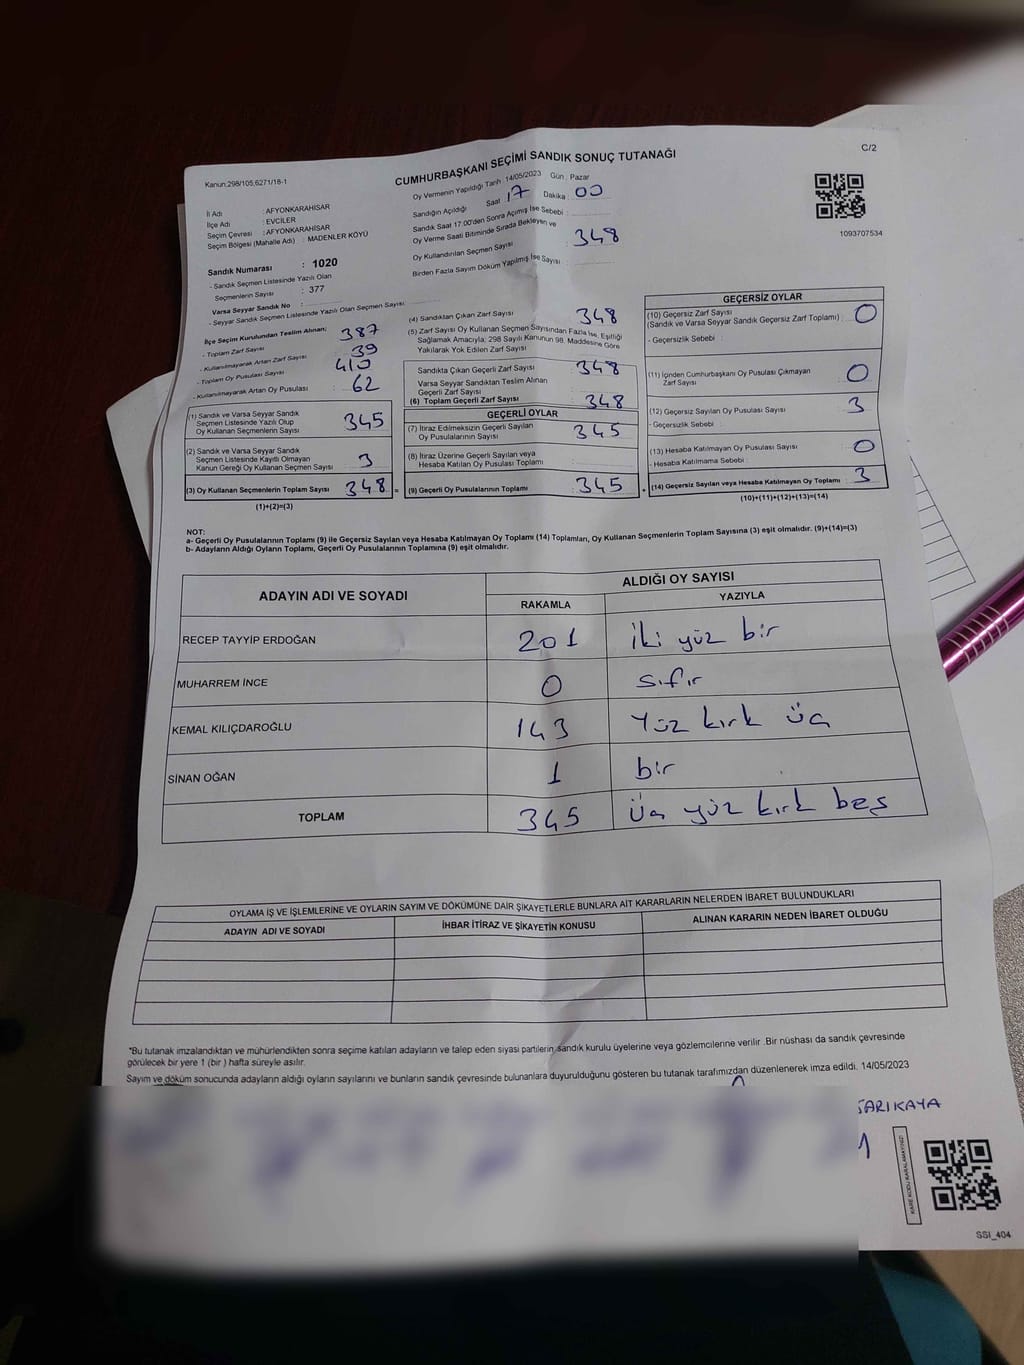 C/2
Kanun;298/105,6271/18-1
CUMHURBAŞKANI SEÇİMİ SANDIK SONUÇ TUTANAĞI
İl Adı : AFYONKARAHİSAR
İlçe Adı : EVCİLER
Seçim Çevresi : AFYONKARAHİSAR
Seçim Bölgesi (Mahalle Adı) : MADENLER KÖYÜ
Sandık Numarası : 1020
- Sandık Seçmen Listesinde Yazılı Olan
Seçmenlerin Sayısı : 377
Varsa Seyyar Sandık No :
- Seyyar Sandık Seçmen Listesinde Yazılı Olan Seçmen Sayısı:
Oy Vermenin Yapıldığı Tarih 14/05/2023 Gün : Pazar
Sandığın Açıldığı Saat 17 Dakika : 00
Sandık Saat 17:00'den Sonra Açılmış İse Sebebi :
Oy Verme Saati Bitiminde Sırada Bekleyen ve
Oy Kullandırılan Seçmen Sayısı : 348
Birden Fazla Sayım Döküm Yapılmış İse Sayısı :
1093707534
İlçe Seçim Kurulundan Teslim Alınan:
- Toplam Zarf Sayısı 387
- Kullanılmayarak Artan Zarf Sayısı 39
- Toplam Oy Pusulası Sayısı 410
- Kullanılmayarak Artan Oy Pusulası 62
(1) Sandık ve Varsa Seyyar Sandık
Seçmen Listesinde Yazılı Olup
Oy Kullanan Seçmenlerin Sayısı 345
(2) Sandık ve Varsa Seyyar Sandık
Seçmen Listesinde Kayıtlı Olmayan
Kanun Gereği Oy Kullanan Seçmen Sayısı 3
(3) Oy Kullanan Seçmenlerin Toplam Sayısı 348 =
(1)+(2)=(3)
(4) Sandıktan Çıkan Zarf Sayısı : 348
(5) Zarf Sayısı Oy Kullanan Seçmen Sayısından Fazla İse, Eşitliği
Sağlamak Amacıyla; 298 Sayılı Kanunun 98. Maddesine Göre
Yakılarak Yok Edilen Zarf Sayısı
Sandıkta Çıkan Geçerli Zarf Sayısı : 348
Varsa Seyyar Sandıktan Teslim Alınan
Geçerli Zarf Sayısı :
(6) Toplam Geçerli Zarf Sayısı : 348
GEÇERLİ OYLAR
(7) İtiraz Edilmeksizin Geçerli Sayılan
Oy Pusulalarının Sayısı : 345
(8) İtiraz Üzerine Geçerli Sayılan veya
Hesaba Katılan Oy Pusulası Toplamı :
(9) Geçerli Oy Pusulalarının Toplamı : 345 +
GEÇERSİZ OYLAR
(10) Geçersiz Zarf Sayısı
(Sandık ve Varsa Seyyar Sandık Geçersiz Zarf Toplamı) : 0
- Geçersizlik Sebebi :
(11) İçinden Cumhurbaşkanı Oy Pusulası Çıkmayan
Zarf Sayısı : 0
(12) Geçersiz Sayılan Oy Pusulası Sayısı : 3
- Geçersizlik Sebebi :
(13) Hesaba Katılmayan Oy Pusulası Sayısı : 0
- Hesaba Katılmama Sebebi :
(14) Geçersiz Sayılan veya Hesaba Katılmayan Oy Toplamı : 3
(10)+(11)+(12)+(13)=(14)
NOT:
a- Geçerli Oy Pusulalarının Toplamı (9) ile Geçersiz Sayılan veya Hesaba Katılmayan Oy Toplamı (14) Toplamları, Oy Kullanan Seçmenlerin Toplam Sayısına (3) eşit olmalıdır. (9)+(14)=(3)
b- Adayların Aldığı Oyların Toplamı, Geçerli Oy Pusulalarının Toplamına (9) eşit olmalıdır.
ADAYIN ADI VE SOYADI ALDIĞI OY SAYISI
RAKAMLA YAZIYLA
RECEP TAYYİP ERDOĞAN 201 iki yüz bir
MUHARREM İNCE 0 sıfır
KEMAL KILIÇDAROĞLU 143 Yüz kırk üç
SİNAN OĞAN 1 bir
TOPLAM 345 üç yüz kırk beş
OYLAMA İŞ VE İŞLEMLERİNE VE OYLARIN SAYIM VE DÖKÜMÜNE DAİR ŞİKAYETLERLE BUNLARA AİT KARARLARIN NELERDEN İBARET BULUNDUKLARI
ADAYIN ADI VE SOYADI İHBAR İTİRAZ VE ŞİKAYETİN KONUSU ALINAN KARARIN NEDEN İBARET OLDUĞU
*Bu tutanak imzalandıktan ve mühürlendikten sonra seçime katılan adayların ve talep eden siyasi partilerin sandık kurulu üyelerine veya gözlemcilerine verilir .Bir nüshası da sandık çevresinde
görülecek bir yere 1 (bir ) hafta süreyle asılır.
Sayım ve döküm sonucunda adayların aldığı oyların sayılarını ve bunların sandık çevresinde bulunanlara duyurulduğunu gösteren bu tutanak tarafımızdan düzenlenerek imza edildi. 14/05/2023
SARIKAYA
KARE KODU KARALAMAYINIZ!
SSI_404